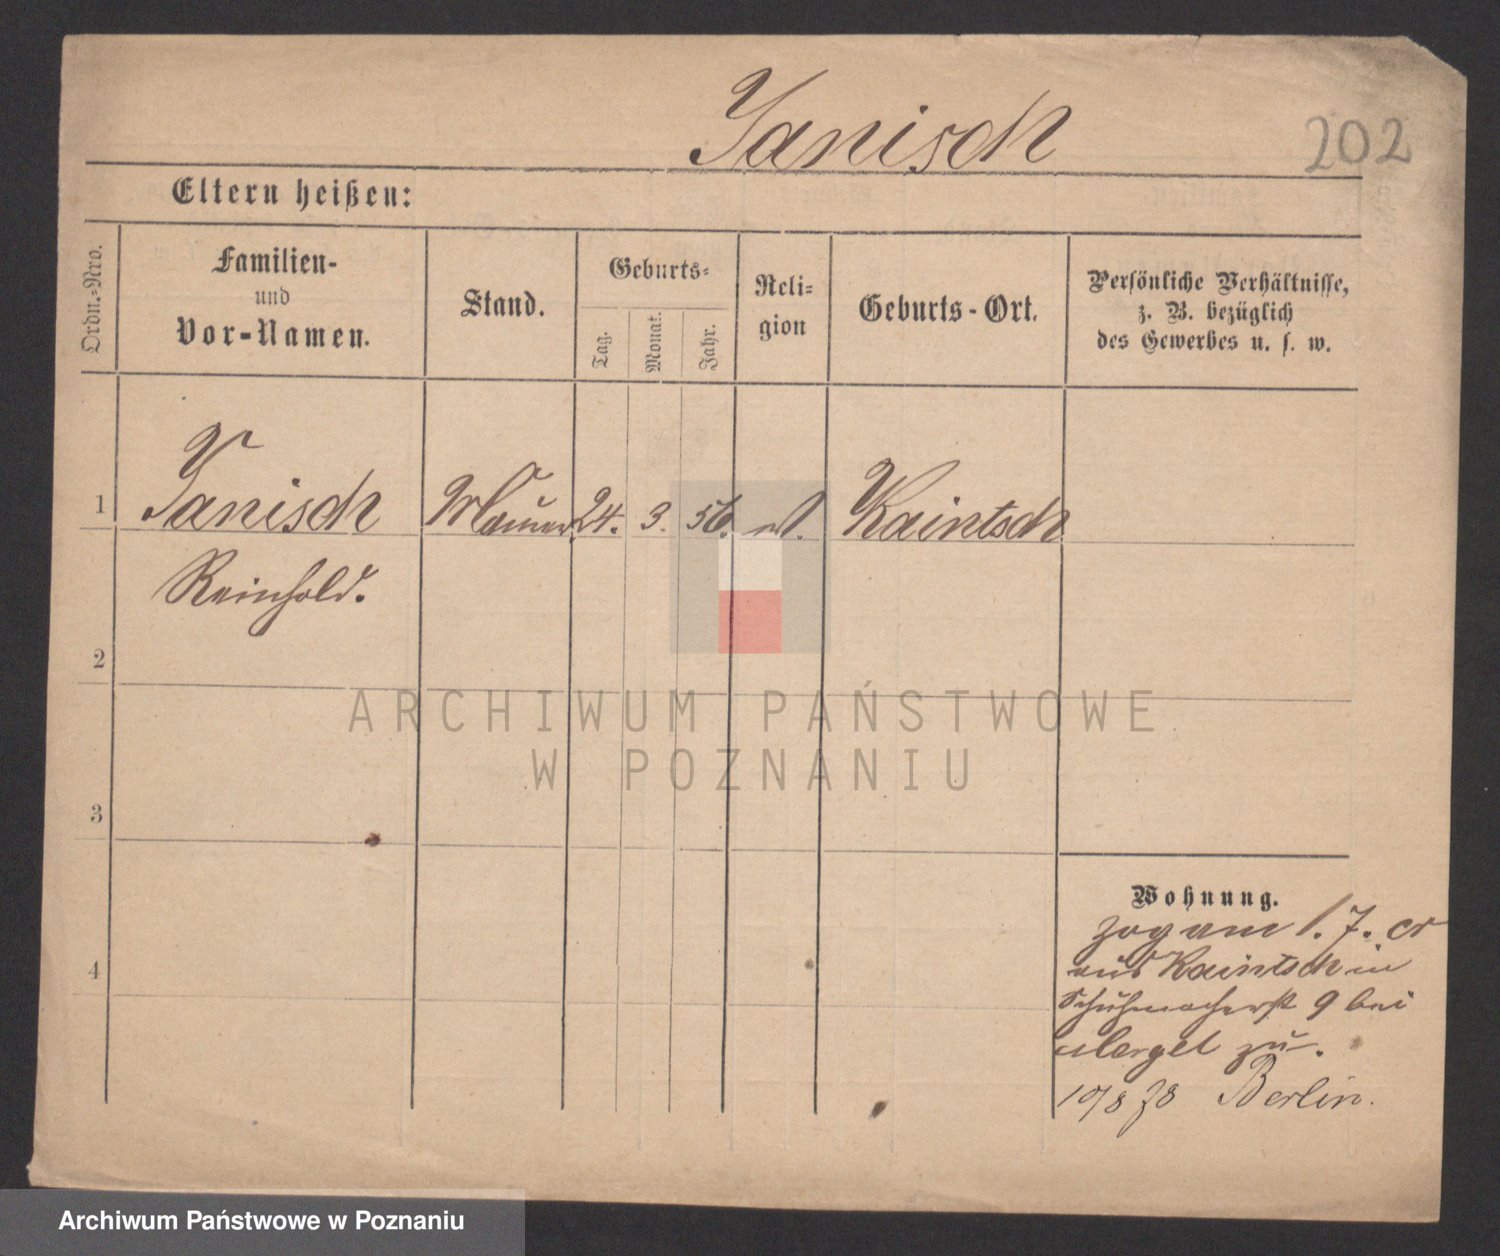 Janisch
202
Eltern heißen:
Ordn.=Nro.
Familien-
und
Vor-Namen.
Stand.
Geburts=
Tag.
Monat.
Jahr.
Reli=
gion
Geburts-Ort.
Persönliche Verhältnisse,
z. B. bezüglich
des Gewerbes u. s. w.
1
Janisch
Maurer
24.
3.
56.
Kaintsch
Reinhold.
2
3
4
Wohnung.
zog am 1. 7. cr
aus Kaintsch in
Schuhmacherst 9 bei
zu.
10/8 78 Berlin.
ARCHIWUM PAŃSTWOWE
W POZNANIU
Archiwum Państwowe w Poznaniu